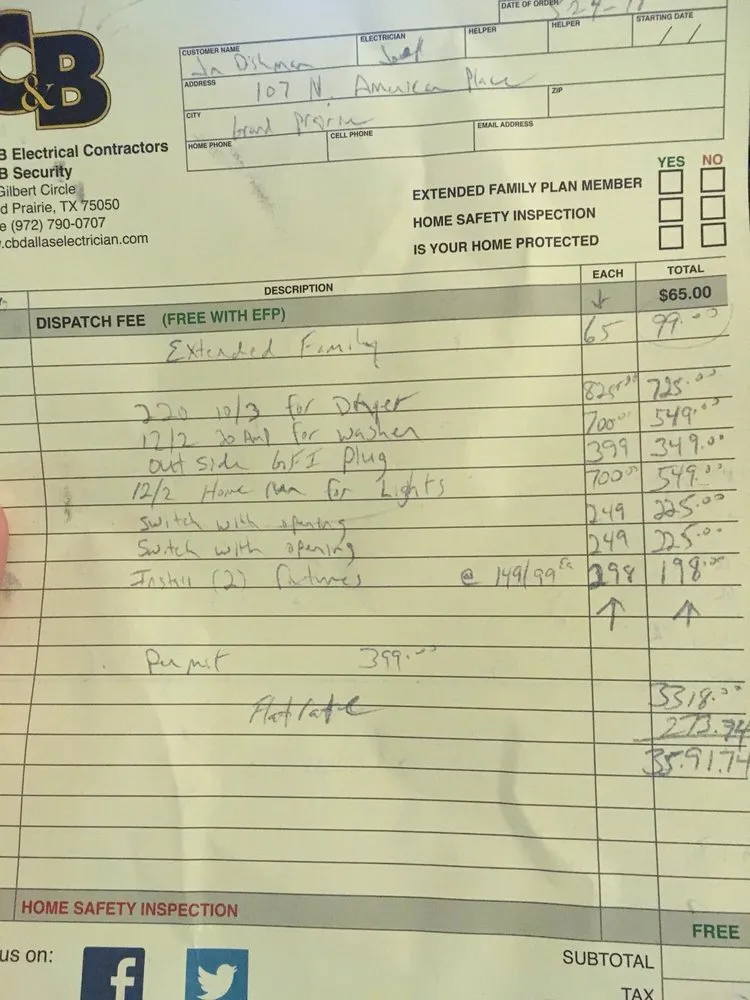 DATE OF ORDER
CUSTOMER NAME Dishman
ELECTRICIAN
HELPER
HELPER
STARTING DATE / /
ADDRESS 107 N. American Place
CITY Grand Prairie
ZIP
HOME PHONE
CELL PHONE
EMAIL ADDRESS
&B
B Electrical Contractors
B Security
Gilbert Circle
d Prairie, TX 75050
e (972) 790-0707
.cbdallaselectrician.com
YES NO
EXTENDED FAMILY PLAN MEMBER
HOME SAFETY INSPECTION
IS YOUR HOME PROTECTED
DESCRIPTION EACH TOTAL
DISPATCH FEE (FREE WITH EFP) ↓ $65.00
Extended Family 65 99.00
220 10/3 for Dryer 825.00 725.00
12/2 20 Amp for washer 700.00 549.00
outside GFI Plug 399 349.00
12/2 Home Run for Lights 700.00 549.00
Switch with opening 249 225.00
Switch with opening 249 225.00
Install (2) fixtures @ 149/99 Ea 298 198.00
↑ ↑
Permit 399.00
3318.00
Flat rate
273.74
3591.74
HOME SAFETY INSPECTION
FREE
us on:
f
SUBTOTAL
TAX